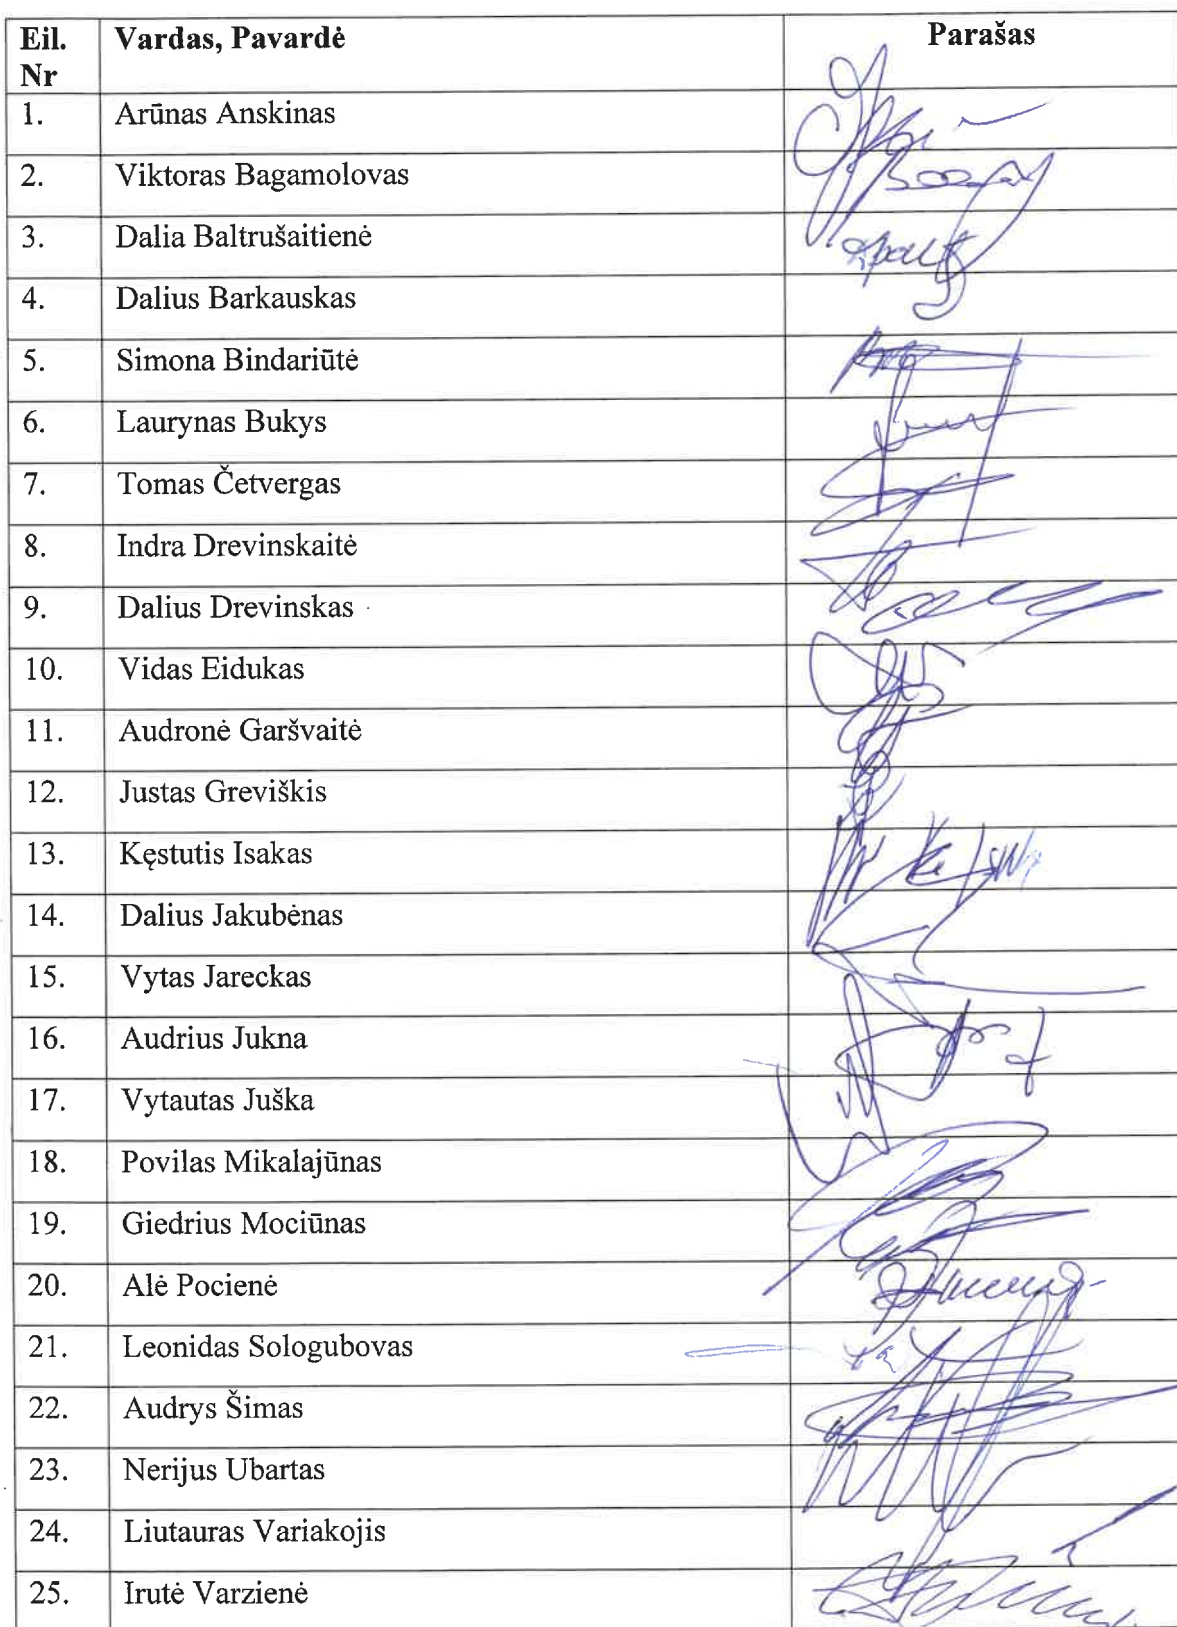 Eil. Nr Vardas, Pavardė Parašas
1. Arūnas Anskinas
2. Viktoras Bagamolovas
3. Dalia Baltrušaitienė
4. Dalius Barkauskas
5. Simona Bindariūtė
6. Laurynas Bukys
7. Tomas Četvergas
8. Indra Drevinskaitė
9. Dalius Drevinskas
10. Vidas Eidukas
11. Audronė Garšvaitė
12. Justas Greviškis
13. Kęstutis Isakas
14. Dalius Jakubėnas
15. Vytas Jareckas
16. Audrius Jukna
17. Vytautas Juška
18. Povilas Mikalajūnas
19. Giedrius Mociūnas
20. Alė Pocienė
21. Leonidas Sologubovas
22. Audrys Šimas
23. Nerijus Ubartas
24. Liutauras Variakojis
25. Irutė Varzienė